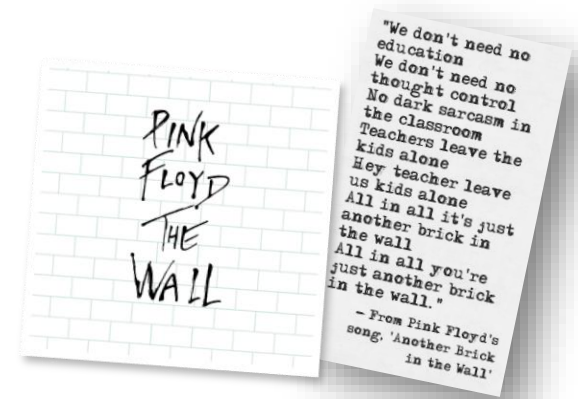 PINK
FLOYD
THE
WALL
"We don't need no
education
We don't need no
thought control
No dark sarcasm in
the classroom
Teachers leave the
kids alone
Hey teacher leave
us kids alone
All in all it's just
another brick in
the wall
All in all you're
just another brick
in the wall."
– From Pink Floyd's
song, 'Another Brick
in the Wall'